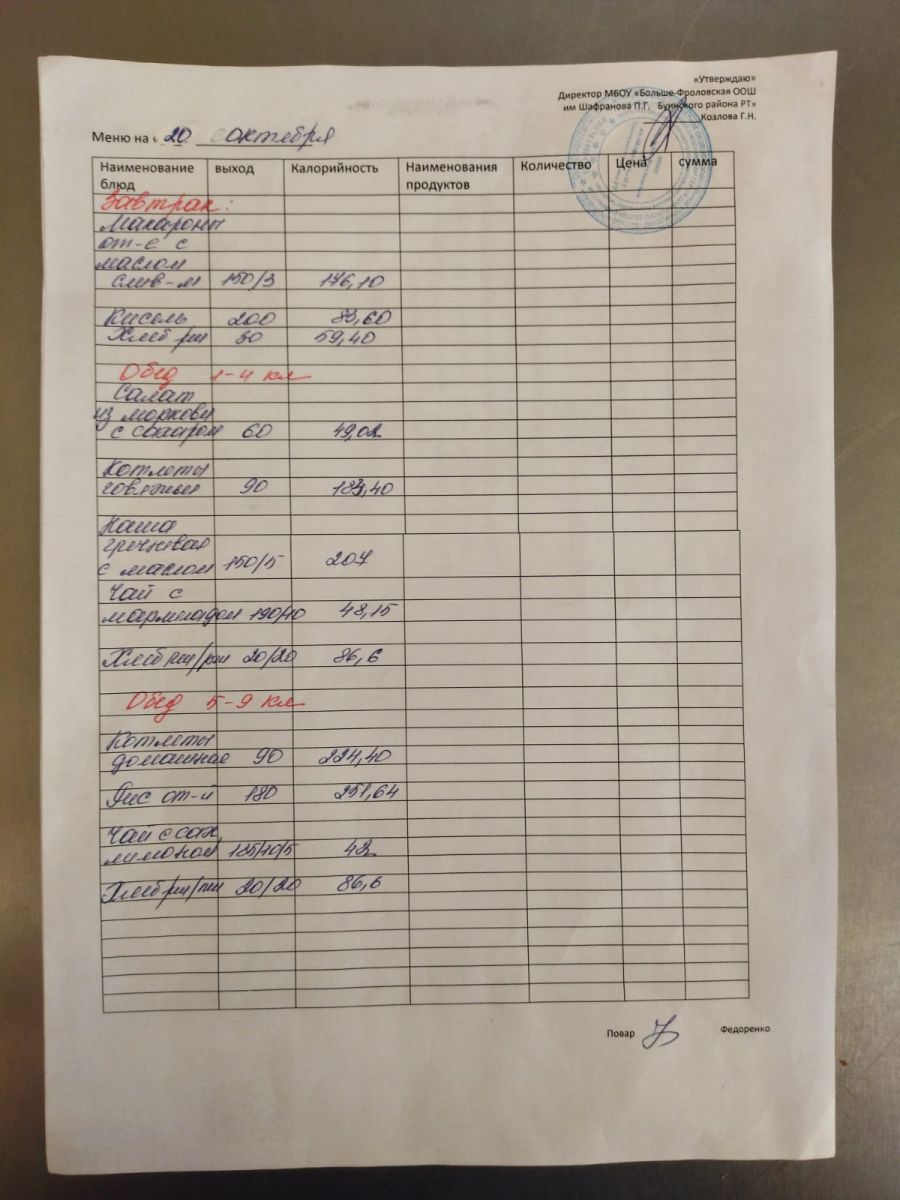 «Утверждаю»
Директор МБОУ «Больше-Фроловская ООШ
им Шафранова П.Г. Буинского района РТ»
Козлова Г.Н.
Меню на « 20 октября
Наименование блюд выход Калорийность Наименования продуктов Количество Цена сумма
Завтрак:
Макароны
от-е с
маслом
слив-м 150/3 176,10
Кисель 200 83,60
Хлеб рж 30 59,40
Обед 1-4 кл
Салат
из моркови
с сахаром 60 49,02
Котлеты
говяжьи 90 183,40
Каша
гречневая
с маслом 150/5 207
Чай с
мармеладом 190/10 48,15
Хлеб пш/рж 20/20 86,6
Обед 5-9 кл
Котлеты
домашние 90 224,40
Рис от-й 180 251,64
Чай с сах,
лимоном 185/10/5 42
Хлеб рж/пш 20/20 86,6
Повар Федоренко